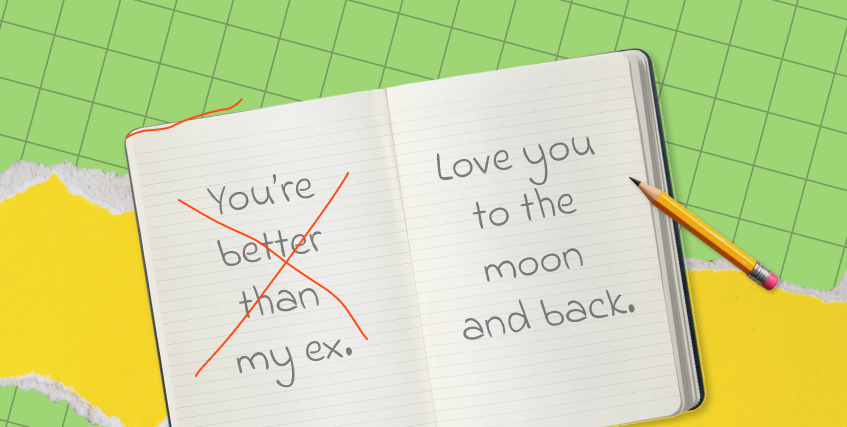 You're
better
than
my ex.
Love you
to the
moon
and back.